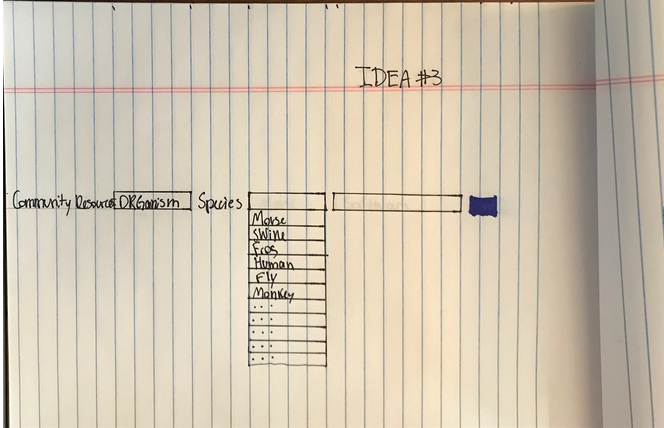 IDEA #3
Community Resources ORGanism Species
Mouse
Swine
Frog
Human
Fly
Monkey
...
...
...
...
...